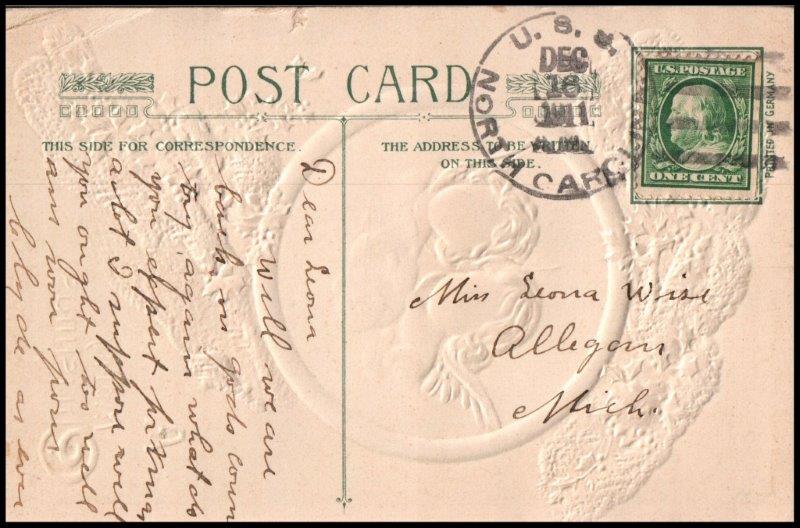 POST CARD
THIS SIDE FOR CORRESPONDENCE.
THE ADDRESS TO BE WRITTEN
ON THIS SIDE.
U. S. S.
DEC
18
1911
NORTH CAROLINA
U.S. POSTAGE
ONE CENT
PRINTED IN GERMANY
Dear Leona
Well we are
back in gods coun
try again what do
you expect for Xmas
a lot I suppose well
you ought too well
ans soon from
Clyde as ever
Miss Leona Wise
Allegan,
Mich.